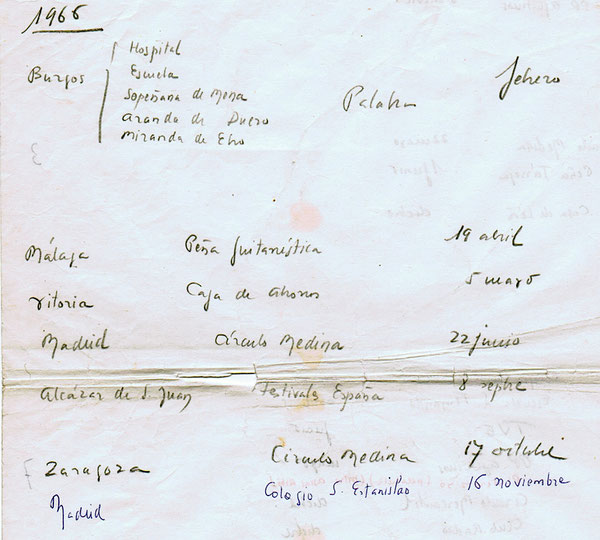 1966
Hospital
Burgos Escuela febrero
Sopeñana de Mena
Aranda de Duero
Miranda de Ebro
Málaga Peña guitarrística 19 abril
Vitoria Caja de Ahorros 5 mayo
Madrid Círculo Medina 22 junio
Alcázar de S. Juan Festivales España 8 sepbre
Zaragoza Círculo Medina 17 octubre
Madrid Colegio S. Estanislao 16 noviembre